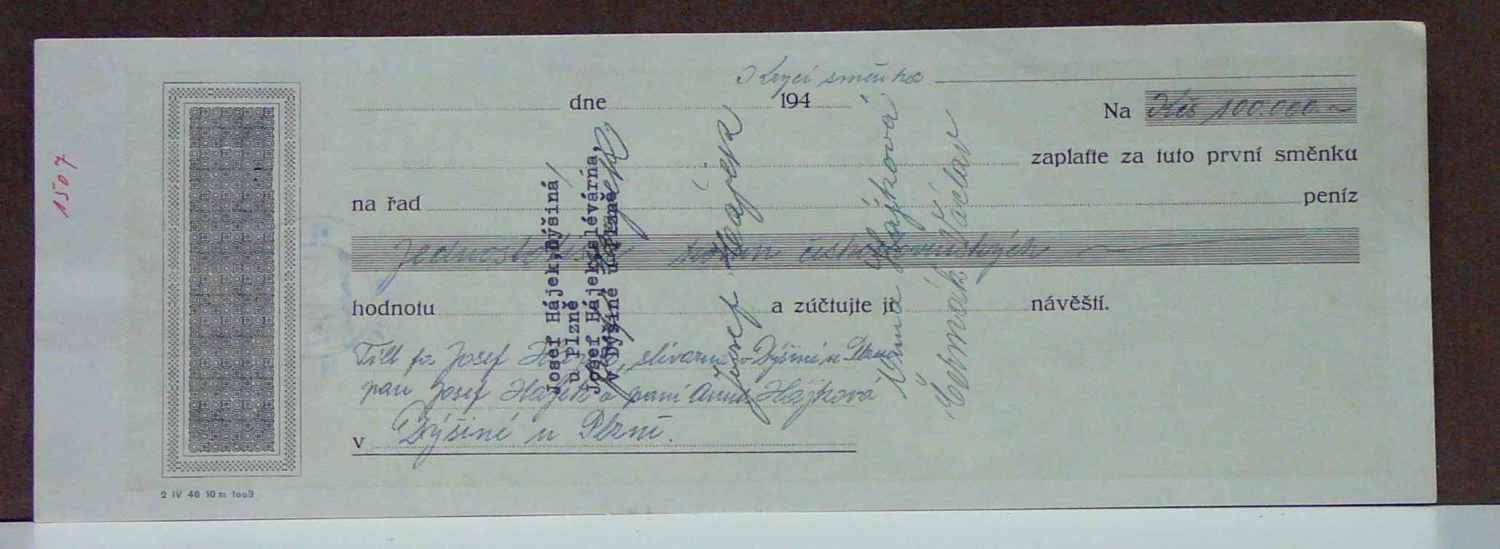 Krycí směnka
dne 194
Na Kčs 100.000
zaplaťte za tuto první směnku
na řad peníz
korun československých
hodnotu a zúčtujte ji návěští.
Titl fa Josef Hájek, slévárna v Dýšině u Plzně
pan Josef Hájek a paní Anna Hájková
v Dýšině u Plzně.
2 IV 46 10 m
1507
Josef Hájek, Dýšiná
u Plzně
Josef Hájek, slévárna,
v Dýšině u Plzně
Josef Hájek
Anna Hájková
Čermák Václav